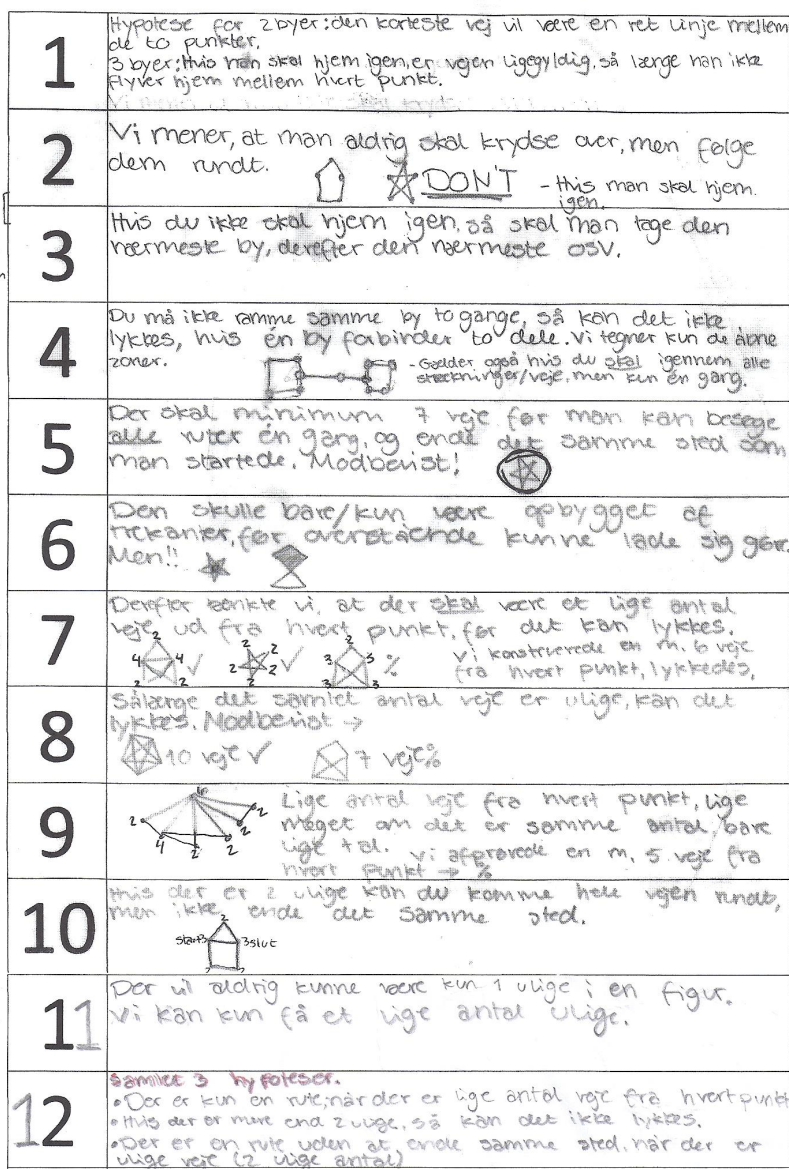 1
Hypotese for 2 byer: den korteste vej vil være en ret linje mellem
de to punkter.
3 byer: Hvis han skal hjem igen, er vejen ligegyldig, så længe han ikke
flyver hjem mellem hvert punkt.
2
Vi mener, at man aldrig skal krydse over, men følge
dem rundt.
DON'T - Hvis man skal hjem
igen.
3
Hvis du ikke skal hjem igen, så skal man tage den
nærmeste by, derefter den nærmeste osv.
4
Du må ikke ramme samme by to gange, så kan det ikke
lykkes, hvis én by forbinder to dele. Vi tegner kun de åbne
zoner.
- Gælder også hvis du skal igennem alle
strækninger/veje, men kun én gang.
5
Der skal minimum 7 veje før man kan besøge
alle ruter én gang, og ende det samme sted som
man startede. Modbevist!
6
Den skulle bare/kun være opbygget af
trekanter, før overstående kunne lade sig gør.
Men!!
7
Derefter tænkte vi, at der skal være et lige antal
veje ud fra hvert punkt, før det kan lykkes.
2 4 4 2 2 ✓ 2 2 2 2 2 ✓ 2 3 3 3 3 %
Vi konstruerede en m. 6 veje
fra hvert punkt, lykkedes.
8
Sålænge det samlet antal veje er ulige, kan det
lykkes. Modbevist →
10 veje ✓ 7 veje %
9
6 2 4 2 2 2 2
Lige antal veje fra hvert punkt, lige
meget om det er samme antal, bare
lige tal. Vi afprøvede en m. 5 veje fra
hvert punkt → %
10
Hvis der er 2 ulige kan du komme hele vejen rundt,
men ikke ende det samme sted.
2
start 3 3 slut
2 2
11
Der vil aldrig kunne være kun 1 ulige i en figur.
Vi kan kun få et lige antal ulige.
12
Samlet 3 hypoteser.
• Der er kun en rute, når der er lige antal veje fra hvert punkt
• Hvis der er mere end 2 ulige, så kan det ikke lykkes.
• Der er en rute uden at ende samme sted, når der er
ulige veje (2 ulige antal)